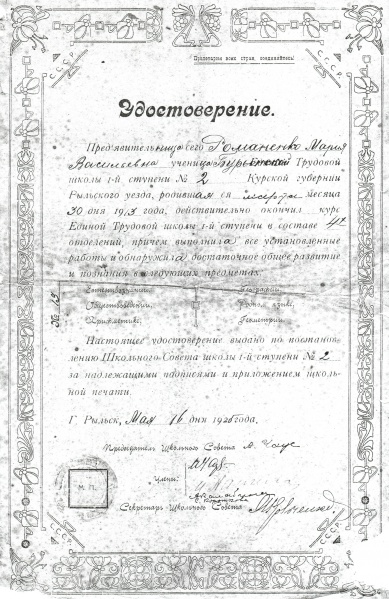 Пролетарии всех стран, соединяйтесь!
СССР.
СССР.
Удостоверение.
Пред'явительница сего Романенко Мария
Васильевна ученица Трудовой
школы 1-й ступени № 2 Курской губернии
Рыльского уезда, родившая ся марта месяца
30 дня 1913 года, действительно окончил курс
Единой Трудовой школы 1-й ступени в составе 4х
отделений, причем выполнила все установленные
работы и обнаружила достаточное общее развитие
и познания в следующих предметах
Естествоведении, Географии,
Обществоведении, Родном языке,
Арифметике, Геометрии.
Настоящее удостоверение выдано по постанов-
лению Школьного Совета школы 1-й ступени № 2
за надлежащими подписями и приложением школь-
ной печати.
Г. Рыльск, Мая 16 дня 1926 года.
Председатель Школьного Совета
Члены:
М. П.
Секретарь Школьного Совета
СССР.
СССР.